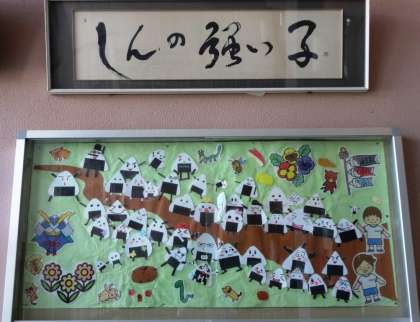 しんの強い子